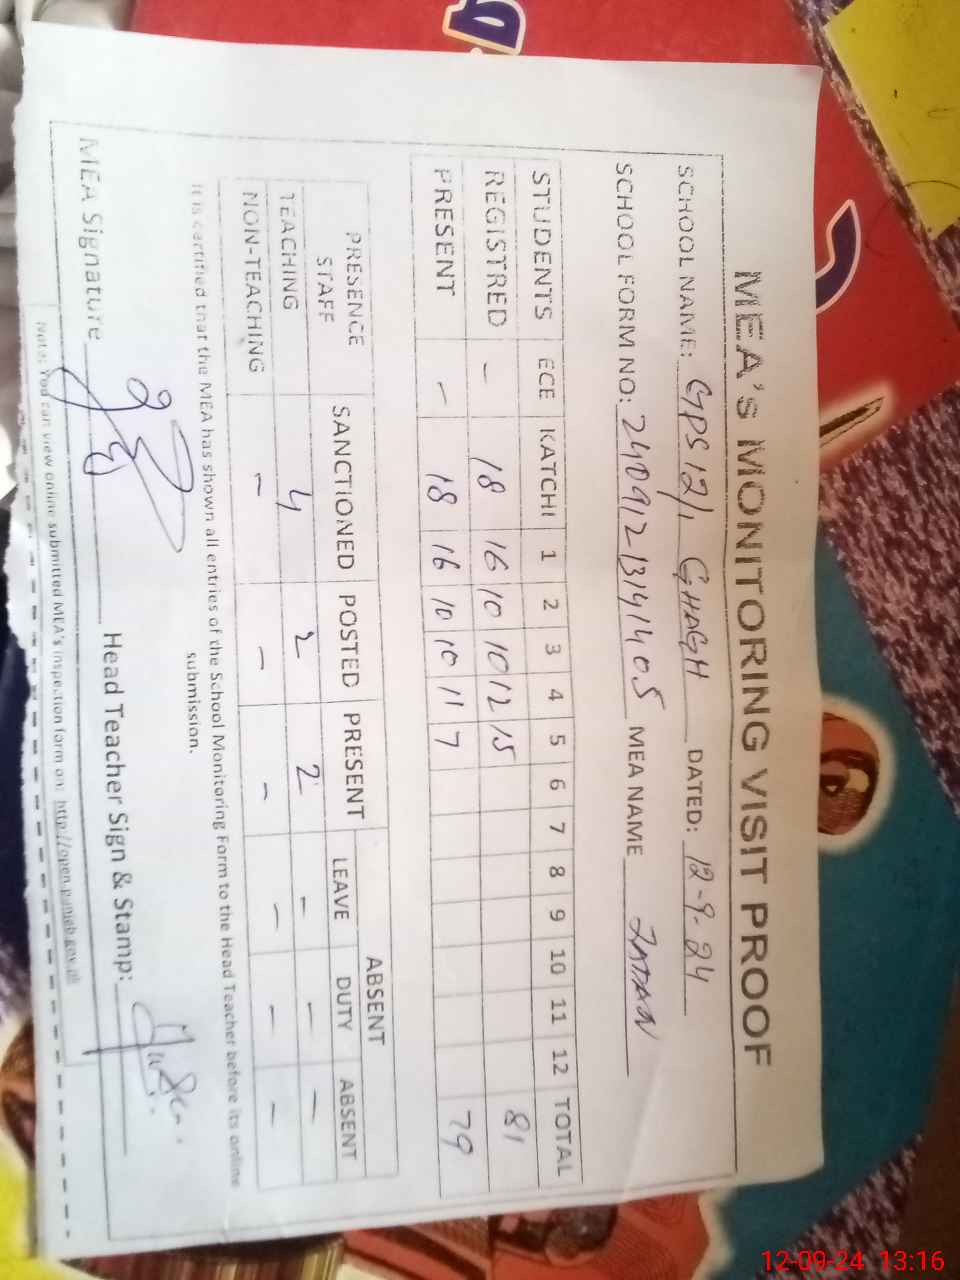 MEA's MONITORING VISIT PROOF
SCHOOL NAME: GPS 12/1 GHAGH DATED: 12-9-24
SCHOOL FORM NO: 24091213141405 MEA NAME
STUDENTS ECE KATCHI 1 2 3 4 5 6 7 8 9 10 11 12 TOTAL
REGISTRED - 18 16 10 10 12 15 81
PRESENT - 18 16 10 10 11 7 79
PRESENCE STAFF SANCTIONED POSTED PRESENT ABSENT
LEAVE DUTY ABSENT
TEACHING 4 2 2 - - -
NON-TEACHING - - - - - -
It is certified that the MEA has shown all entries of the School Monitoring Form to the Head Teacher before its online
submission.
MEA Signature Head Teacher Sign & Stamp:
Note: You can view online submitted MEA's inspection form on: http://open.punjab.gov.pk
12-09-24 13:16